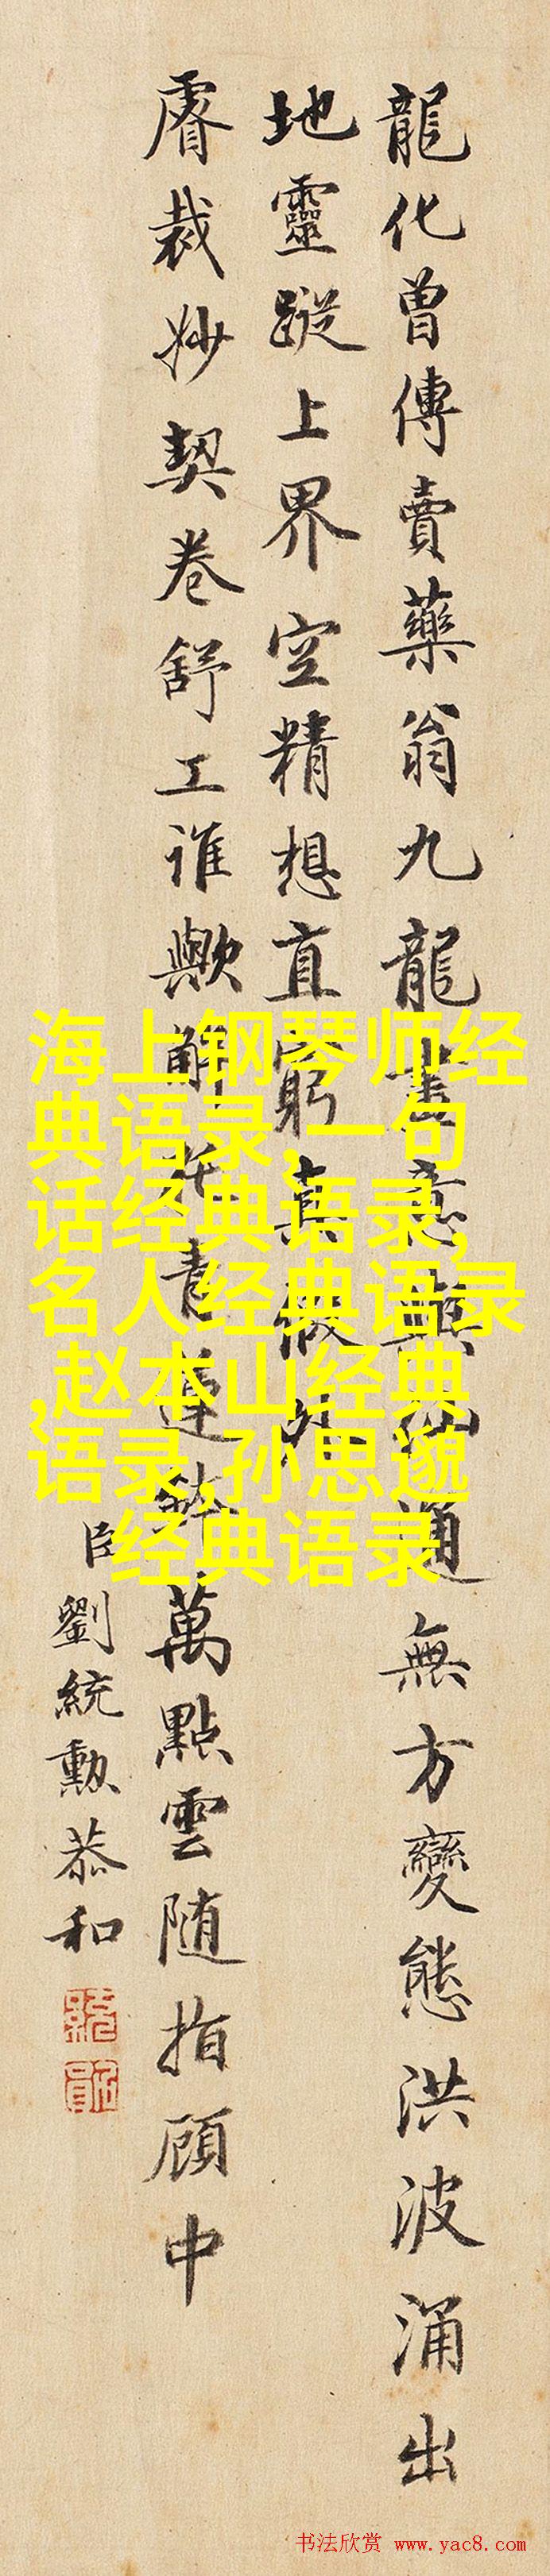 龍化曾傳賣藥翁九龍畫意通無方變態洪波涌出
地靈蹤上界空精想直窮真
睿裁妙契卷舒工誰歟解青蓮萬點雲随指顧中
臣劉統勳恭和
海上钢琴师经
典语录,一句
话经典语录,
名人经典语录
,赵本山经典
语录,孙思邈
经典语录
书法欣赏 www.yac8.com